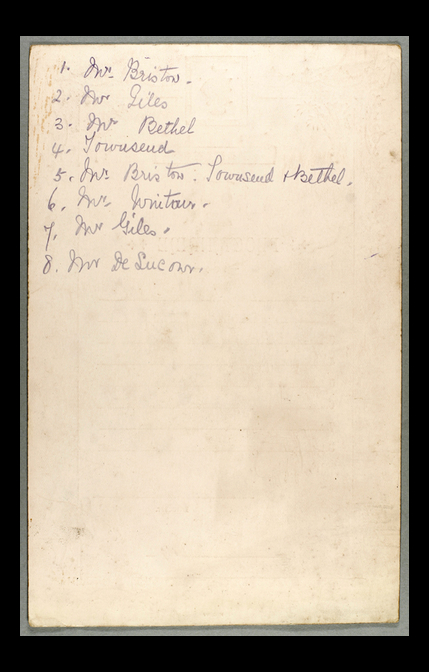 1. Mr. Bristow.
2. Mr Giles
3. Mr Bethel
4. Townsend
5. Mr. Bristow. Townsend + Bethel.
6. Mr.
7. Mr Giles.
8. Mr De